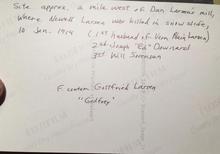 Site approx. a mile west of Dan Larson's mill,
where Newell Larson was killed in snow slide,
10 Jan. 1914 (1st husband of Vern Larson)
2nd Joseph "Ed" Downard
3rd Will Sorenson
F. center Gottfried Larson
"Godfrey"